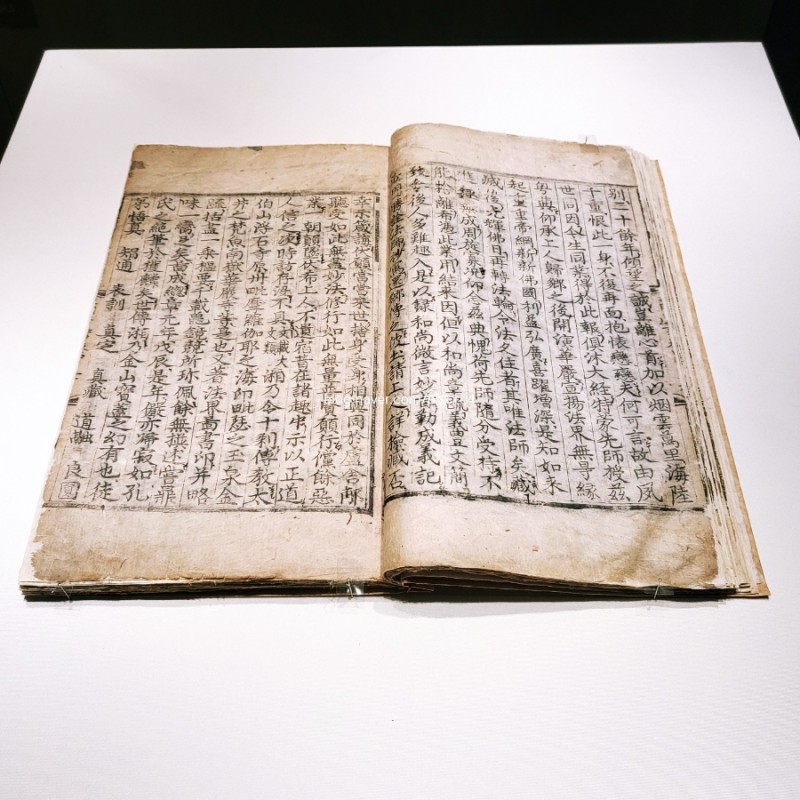 別二十餘年傾望之誠豈離心首加以烟雲萬里海陸
千重恨此一身不復再面抱懷戀戀夫何可言故由夙
世同因今生同業得於此報俱沐大經特蒙先師授茲
奧典仰承上人歸鄉之後開演華嚴宣揚法界無㝵緣
起重重帝網新新佛國利益弘廣喜躍增深是知如來
滅後光輝佛日再轉法輪令法久住者其唯法師矣藏
進趣無成周旋寡況仰念茲典愧荷先師隨分受持不
能捨離希憑此業用結來因但以和尚章疏義豊文簡
致令後人多難趣入是以錄和尚微言妙旨勤成義記
近因勝詮法師抄寫還鄉傳之彼土請上人詳撿臧否
幸示箴誨伏願當當來世捨身受身相與同於盧舍那
聽受如此無盡妙法修行如此無量普賢願行儻餘惡
業一朝顛墜伏希上人不遺宿昔在諸趣中示以正道
人信之次時訪存沒不具文載大文類湘乃令十刹傳教太
伯山浮石寺原州毗摩羅伽耶之海印毗瑟之玉泉金
井之梵魚南嶽華嚴寺等是也又著法界圖書印并略
疏括盡一乘樞要千載龜鏡競所珎佩餘無撰述嘗鼎
味一臠足矣圖成總章元年戊辰是年儼亦歸寂如孔
氏之絕筆於獲麟矣世傳湘乃金山寶蓋之幻有也徒
弟悟真 智通 表訓 真定 真藏 道融 良圓